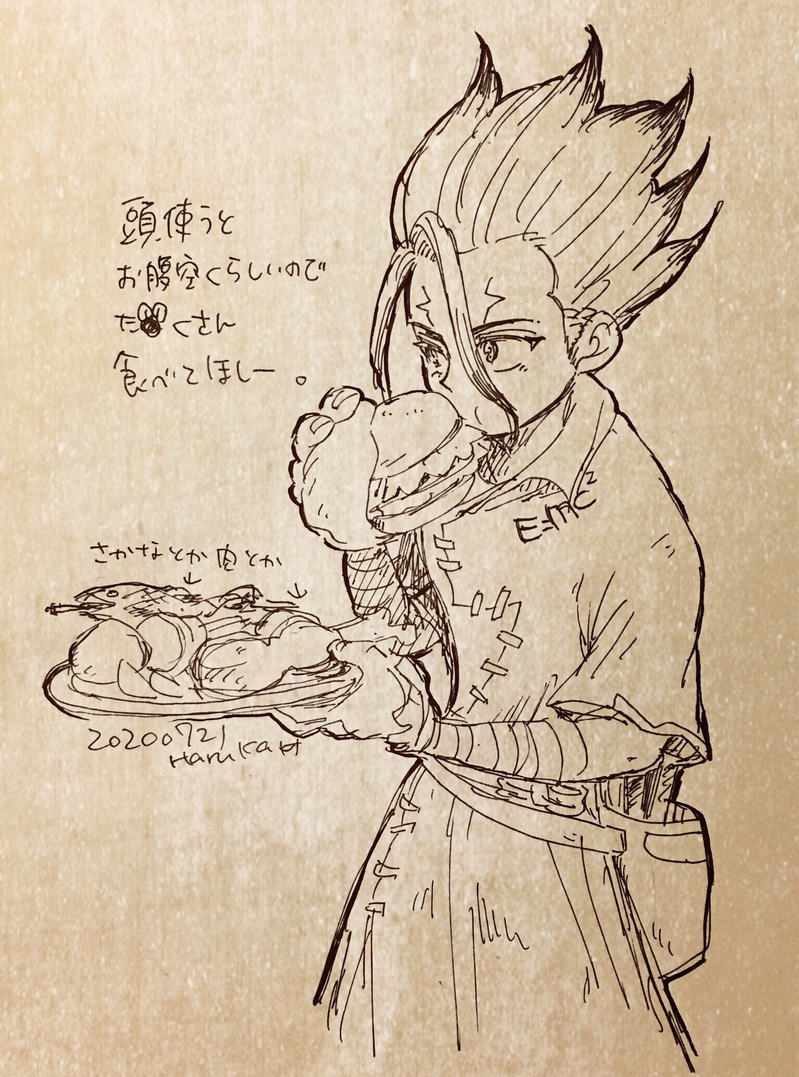 頭使うと
お腹空くらしいので
たくさん
食べてほしー。
E=mc²
さかなとか肉とか
20200721
Haruka H